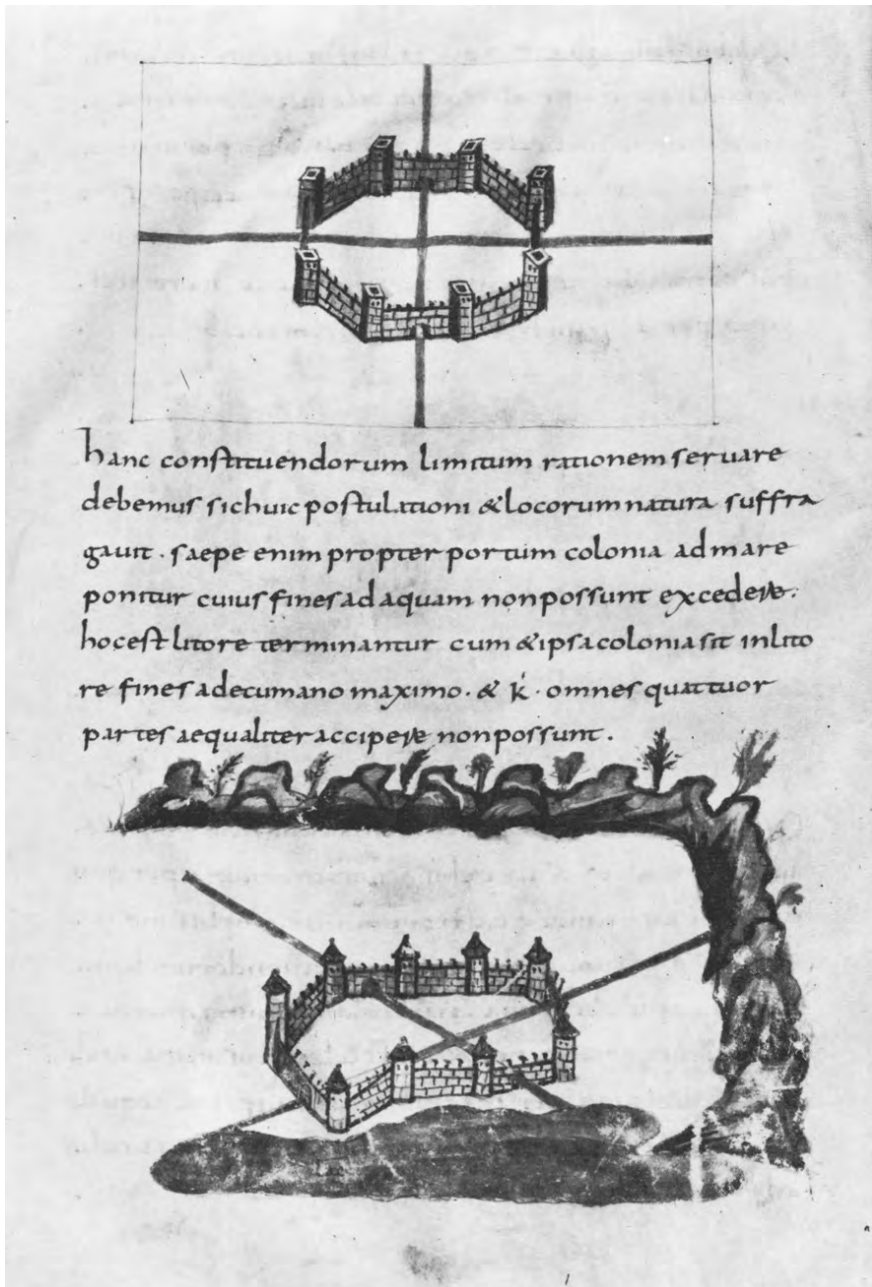 hanc constituendorum limitum rationem seruare
debemus si huic postulationi & locorum natura suffra
gauit · saepe enim propter portum colonia ad mare
ponitur cuius fines ad aquam non possunt excedere ·
hoc est litore terminantur cum & ipsa colonia sit in lito
re fines a decumano maximo · & k · omnes quattuor
partes aequaliter accipere non possunt ·